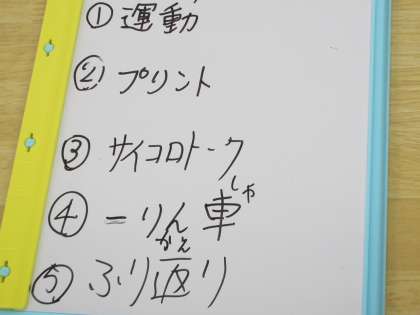 ① 運動
② プリント
③ サイコロトーク
④ 一りん車
しゃ
⑤ ふり返り
かえ